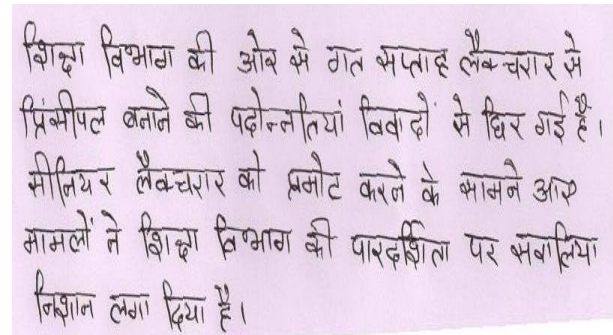 शिक्षा विभाग की ओर से गत सप्ताह लैक्चरार से
प्रिंसीपल बनाने की पदोन्नतियां विवादों से घिर गई है।
सीनियर लैक्चरार को प्रमोट करने के सामने आए
मामलों ने शिक्षा विभाग की पारदर्शिता पर सवालिया
निशान लगा दिया है।